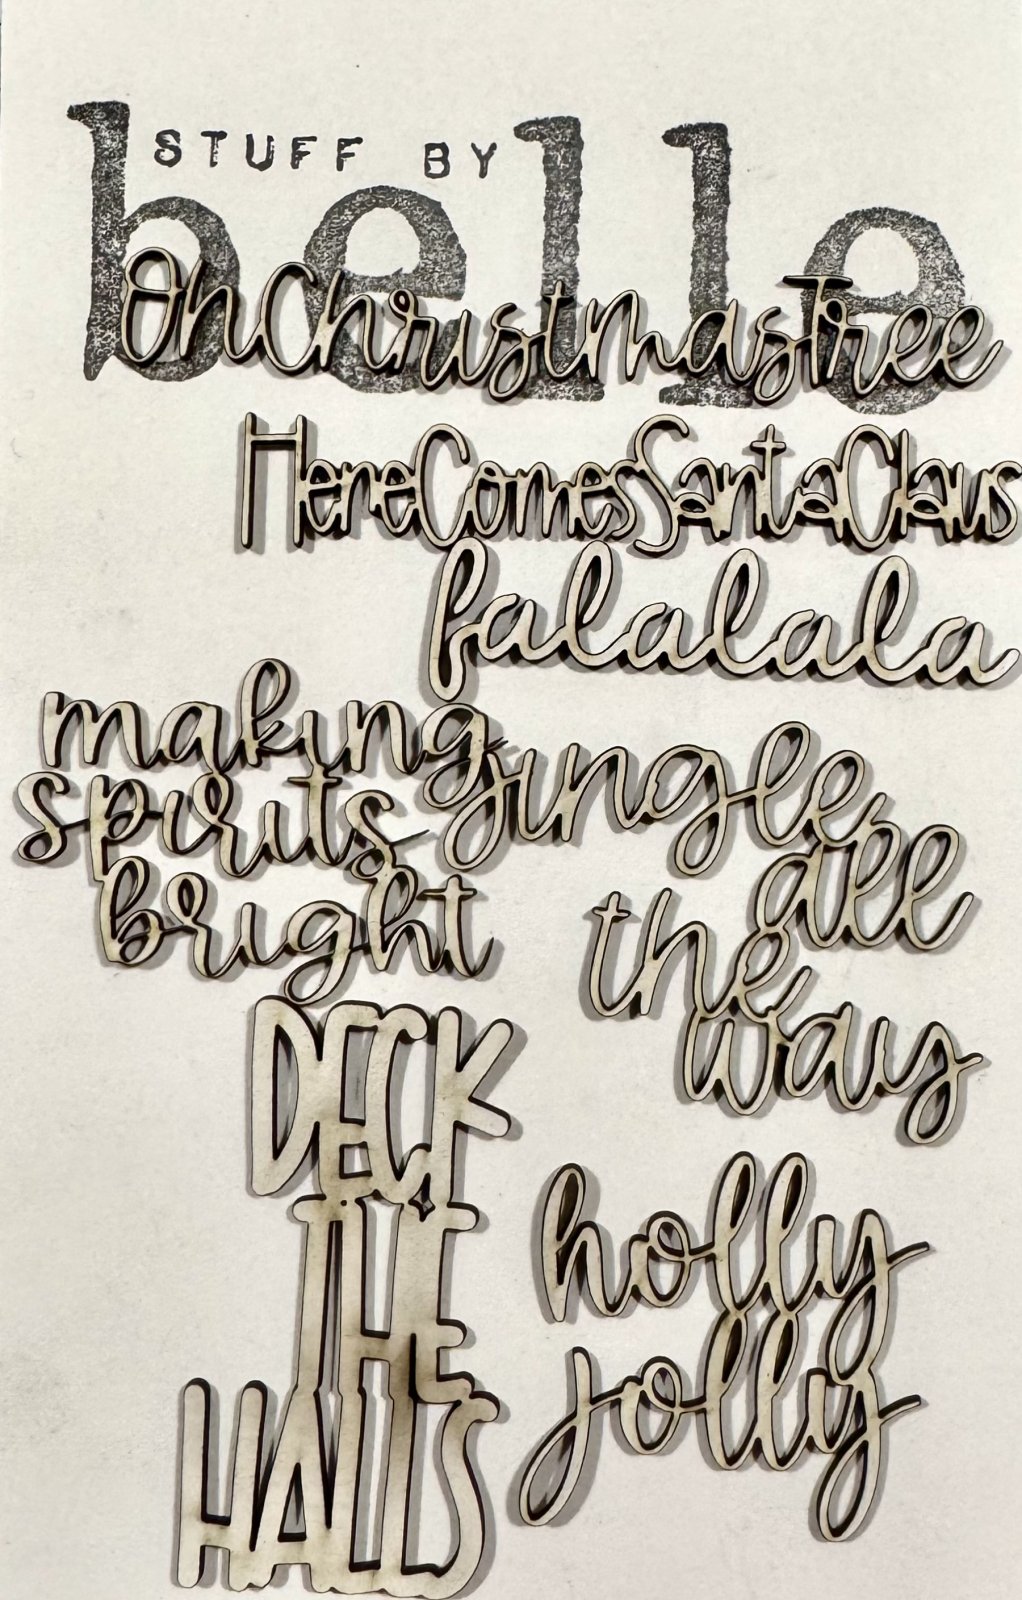 STUFF BY
belle
OhChristmasTree
HereComesSantaClaus
falalala
making
spirits
bright
jingle
all
the
way
DECK
THE
HALLS
holly
jolly